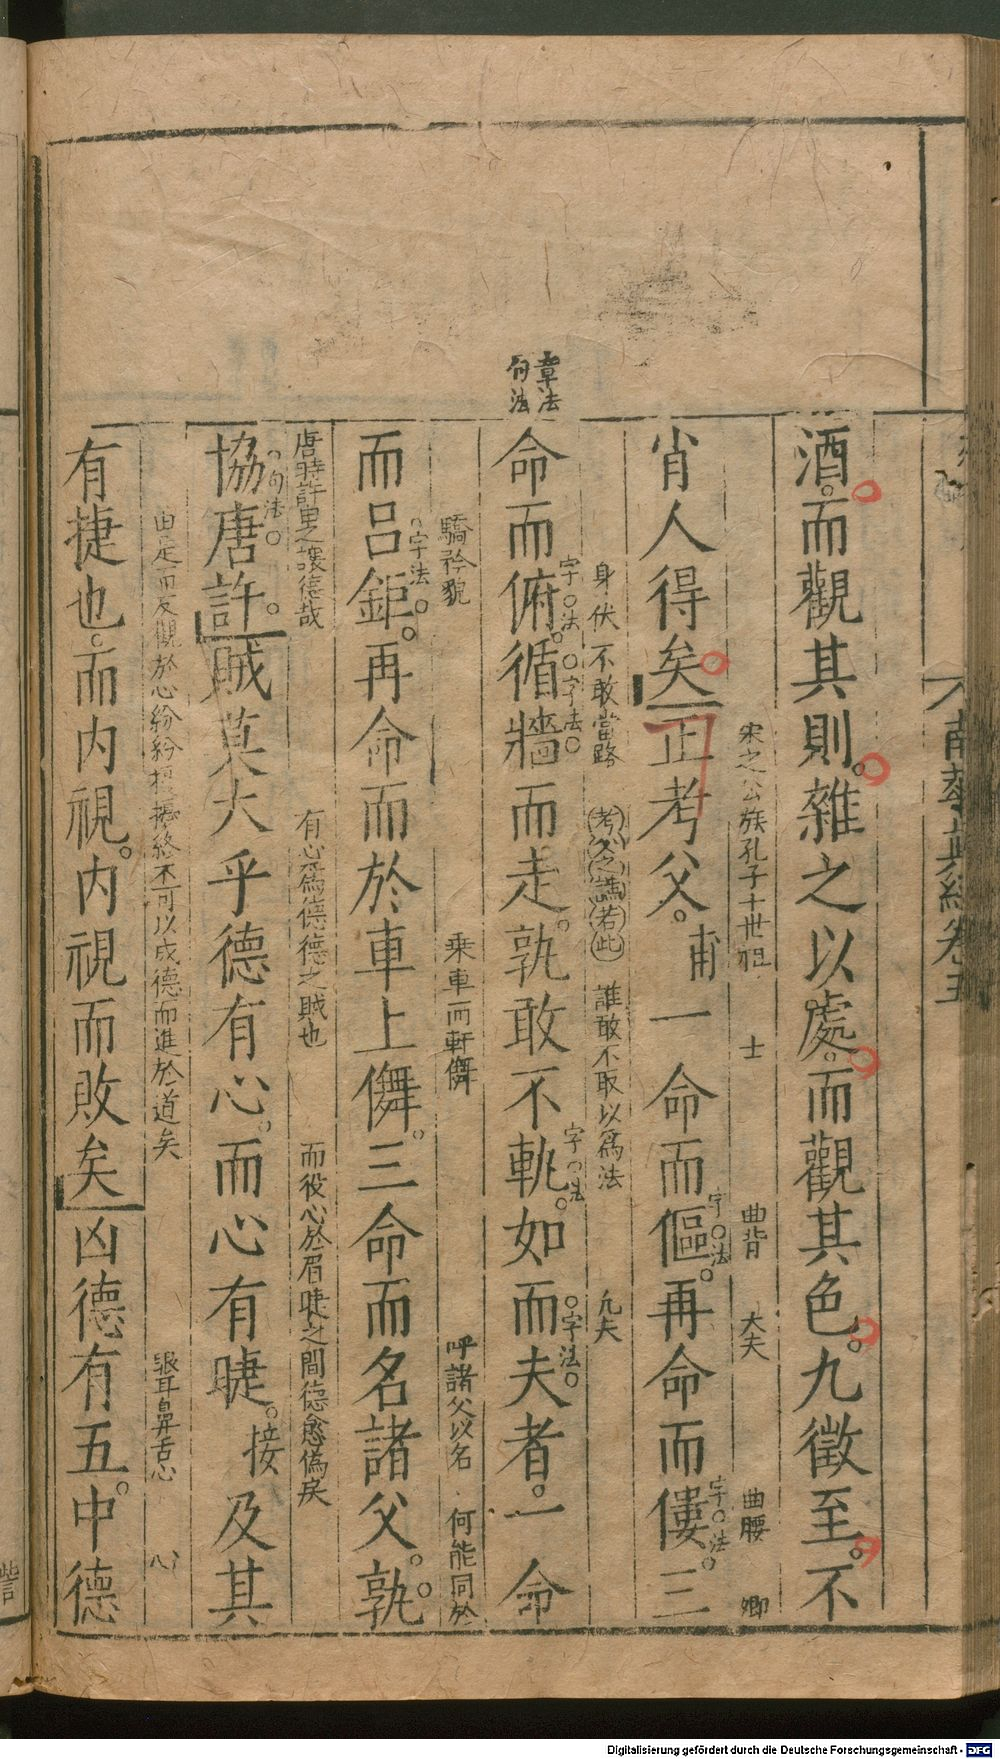 南華真經卷五
酒。而觀其則。雜之以處。而觀其色。九徵至。不
宋之公族孔子十世祖 士 曲背 大夫 曲腰 卿
肖人得矣正考父。甫一命而傴。再命而僂。三
字法 字法
身伏 不敢當路 考父之謙若此 誰敢不取以為法 凡夫
章法
句法
命而俯。循牆而走。孰敢不軌。如而夫者。一命
字法 字法 字法 字法
驕矜貌 乘車而軒儛 呼諸父以名 何能同於
而呂鉅。再命而於車上儛。三命而名諸父。孰
字法
唐時許由之讓德哉 有心為德德之賊也 而役心於眉睫之間德愈偽矣
協唐許。賊莫大乎德有心。而心有睫。接及其
句法
由是而反觀於心紛紛擾終不可以成德而進於道矣 眼耳鼻舌心 心
有捷也。而內視。內視而敗矣凶德有五。中德
Digitalisierung gefördert durch die Deutsche Forschungsgemeinschaft - DFG